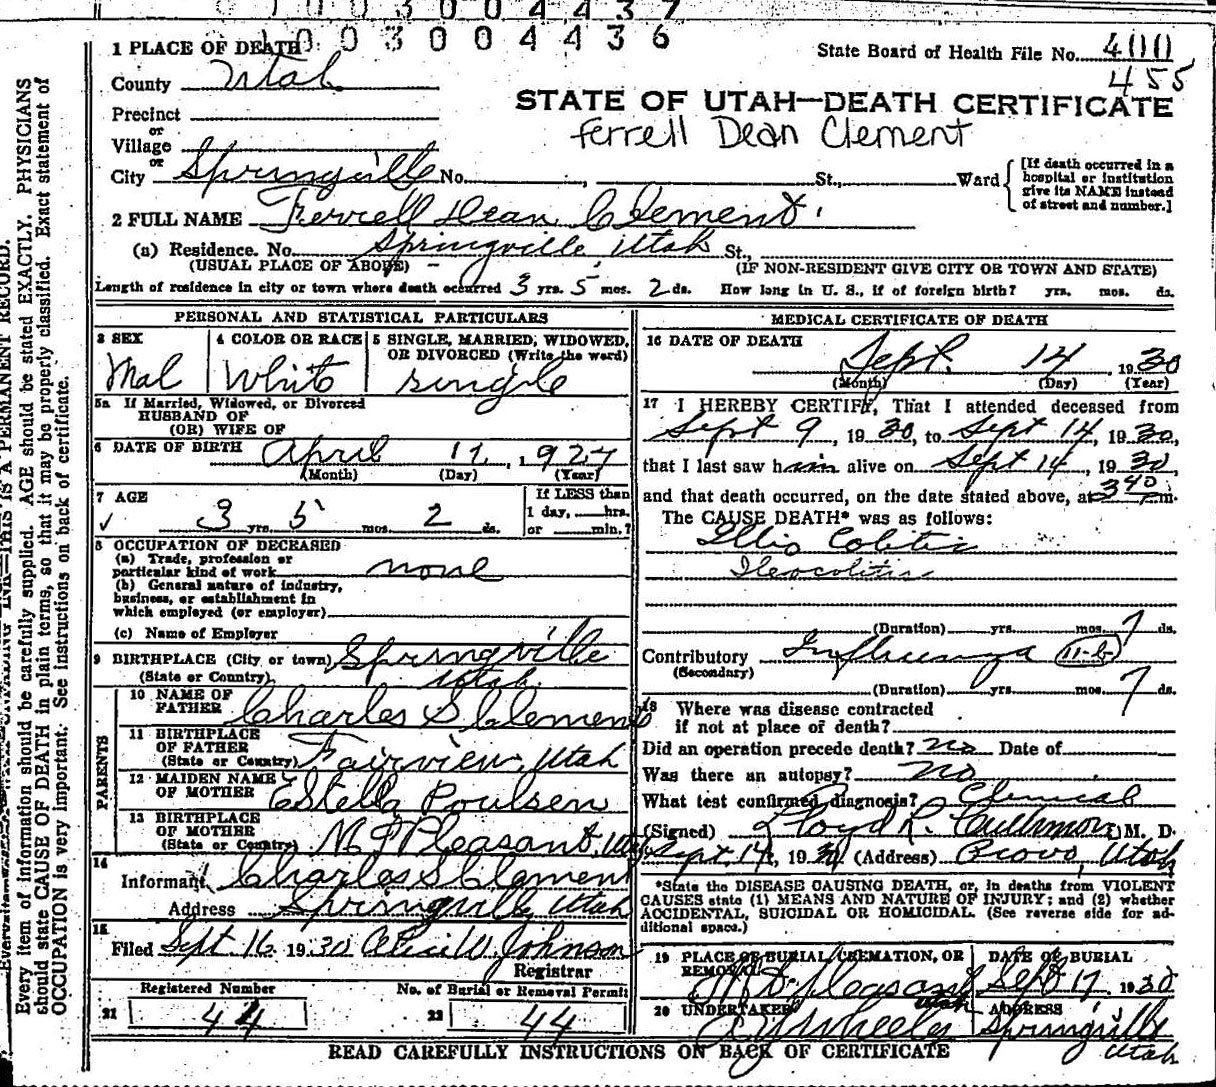 0 0 3 0 0 4 4 3 7
0 0 3 0 0 4 4 3 6
1 PLACE OF DEATH
State Board of Health File No. 400
455
County Utah
STATE OF UTAH—DEATH CERTIFICATE
Precinct
Ferrell Dean Clement
or
Village
or
City Springville No. , St., Ward
[If death occurred in a hospital or institution give its NAME instead of street and number.]
2 FULL NAME Ferrell Dean Clement
(a) Residence. No. Springville, Utah St.,
(USUAL PLACE OF ABODE) (IF NON-RESIDENT GIVE CITY OR TOWN AND STATE)
Length of residence in city or town where death occurred 3 yrs. 5 mos. 2 ds. How long in U. S., if of foreign birth? yrs. mos. ds.
PERSONAL AND STATISTICAL PARTICULARS
3 SEX
Mal
4 COLOR OR RACE
White
5 SINGLE, MARRIED, WIDOWED, OR DIVORCED (Write the word)
single
5a If Married, Widowed, or Divorced
HUSBAND OF
(OR) WIFE OF
6 DATE OF BIRTH April 12, 1927
(Month) (Day) (Year)
7 AGE
3 yrs. 5 mos. 2 ds.
If LESS than
1 day, hrs.
or min.?
8 OCCUPATION OF DECEASED
(a) Trade, profession or
particular kind of work none
(b) General nature of industry,
business, or establishment in
which employed (or employer)
(c) Name of Employer
9 BIRTHPLACE (City or town) Springville
(State or Country) Utah
PARENTS
10 NAME OF
FATHER Charles S Clement
11 BIRTHPLACE
OF FATHER
(State or Country) Fairview, Utah
12 MAIDEN NAME
OF MOTHER Estella Poulsen
13 BIRTHPLACE
OF MOTHER
(State or Country) Mt Pleasant, Utah
14
Informant Charles S Clement
Address Springville Utah
15
Filed Sept. 16 1930 Johnson
Registrar
Registered Number
21 44
No. of Burial or Removal Permit
22 44
MEDICAL CERTIFICATE OF DEATH
16 DATE OF DEATH
Sept. 14, 1930
(Month) (Day) (Year)
17 I HEREBY CERTIFY, That I attended deceased from
Sept 9, 1930, to Sept 14, 1930,
that I last saw him alive on Sept 14, 1930,
and that death occurred, on the date stated above, at 3 40 Pm.
The CAUSE DEATH* was as follows:
Illio Colitis
Ileocolitis
(Duration) yrs. mos. 7 ds.
Contributory Influenza 11-b
(Secondary)
(Duration) yrs. mos. 7 ds.
18 Where was disease contracted
if not at place of death?
Did an operation precede death? no Date of
Was there an autopsy? no
What test confirmed diagnosis? Clinical
(Signed) Lloyd L. M. D.
Sept. 14, 1930. (Address) Provo, Utah
*State the DISEASE CAUSING DEATH, or, in deaths from VIOLENT
CAUSES state (1) MEANS AND NATURE OF INJURY; and (2) whether
ACCIDENTAL, SUICIDAL OR HOMICIDAL. (See reverse side for ad-
ditional space.)
19 PLACE OF BURIAL, CREMATION, OR
REMOVAL
Mt. Pleasant Utah
DATE OF BURIAL
Sept 17, 1930
20 UNDERTAKER
Wheeler
ADDRESS
Springville
Utah
READ CAREFULLY INSTRUCTIONS ON BACK OF CERTIFICATE
THIS IS A PERMANENT RECORD.
Every item of information should be carefully supplied. AGE should be stated EXACTLY. PHYSICIANS
should state CAUSE OF DEATH in plain terms, so that it may be properly classified. Exact statement of
OCCUPATION is very important. See instructions on back of certificate.